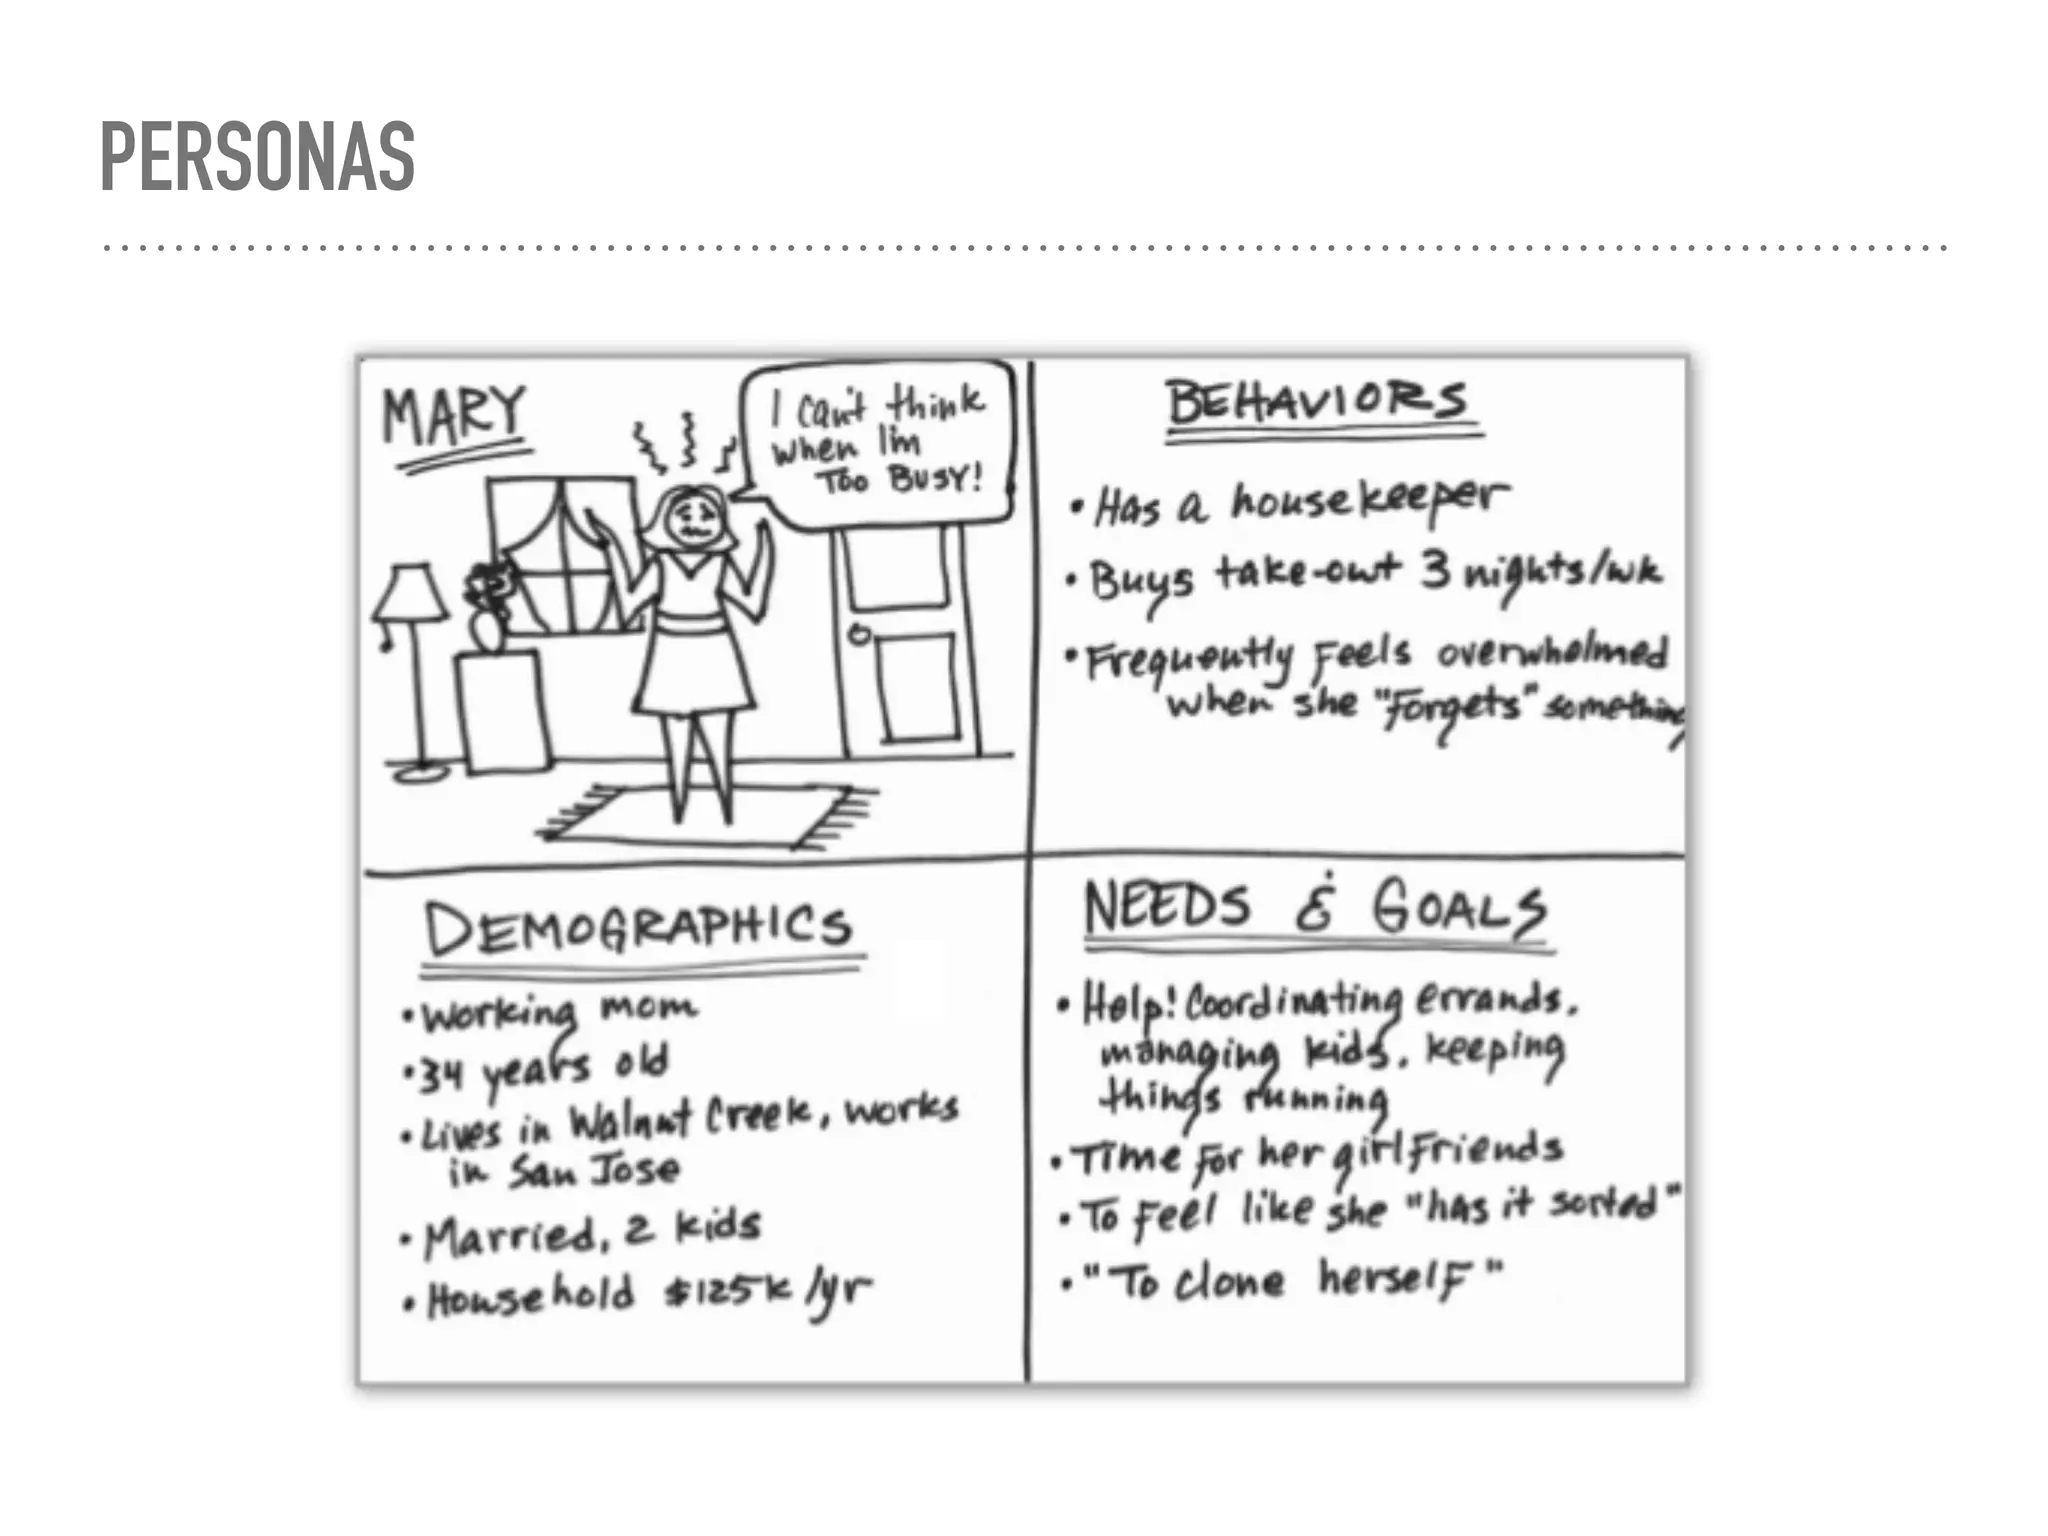 PERSONAS
MARY
I can't think
when I'm
TOO BUSY!
BEHAVIORS
• Has a housekeeper
• Buys take-out 3 nights/wk
• Frequently feels overwhelmed
when she "forgets" something
DEMOGRAPHICS
• Working mom
• 34 years old
• Lives in Walnut Creek, works
in San Jose
• Married, 2 kids
• Household $125k/yr
NEEDS & GOALS
• Help! Coordinating errands,
managing kids, keeping
things running
• Time for her girlfriends
• To feel like she "has it sorted"
• "To clone herself"